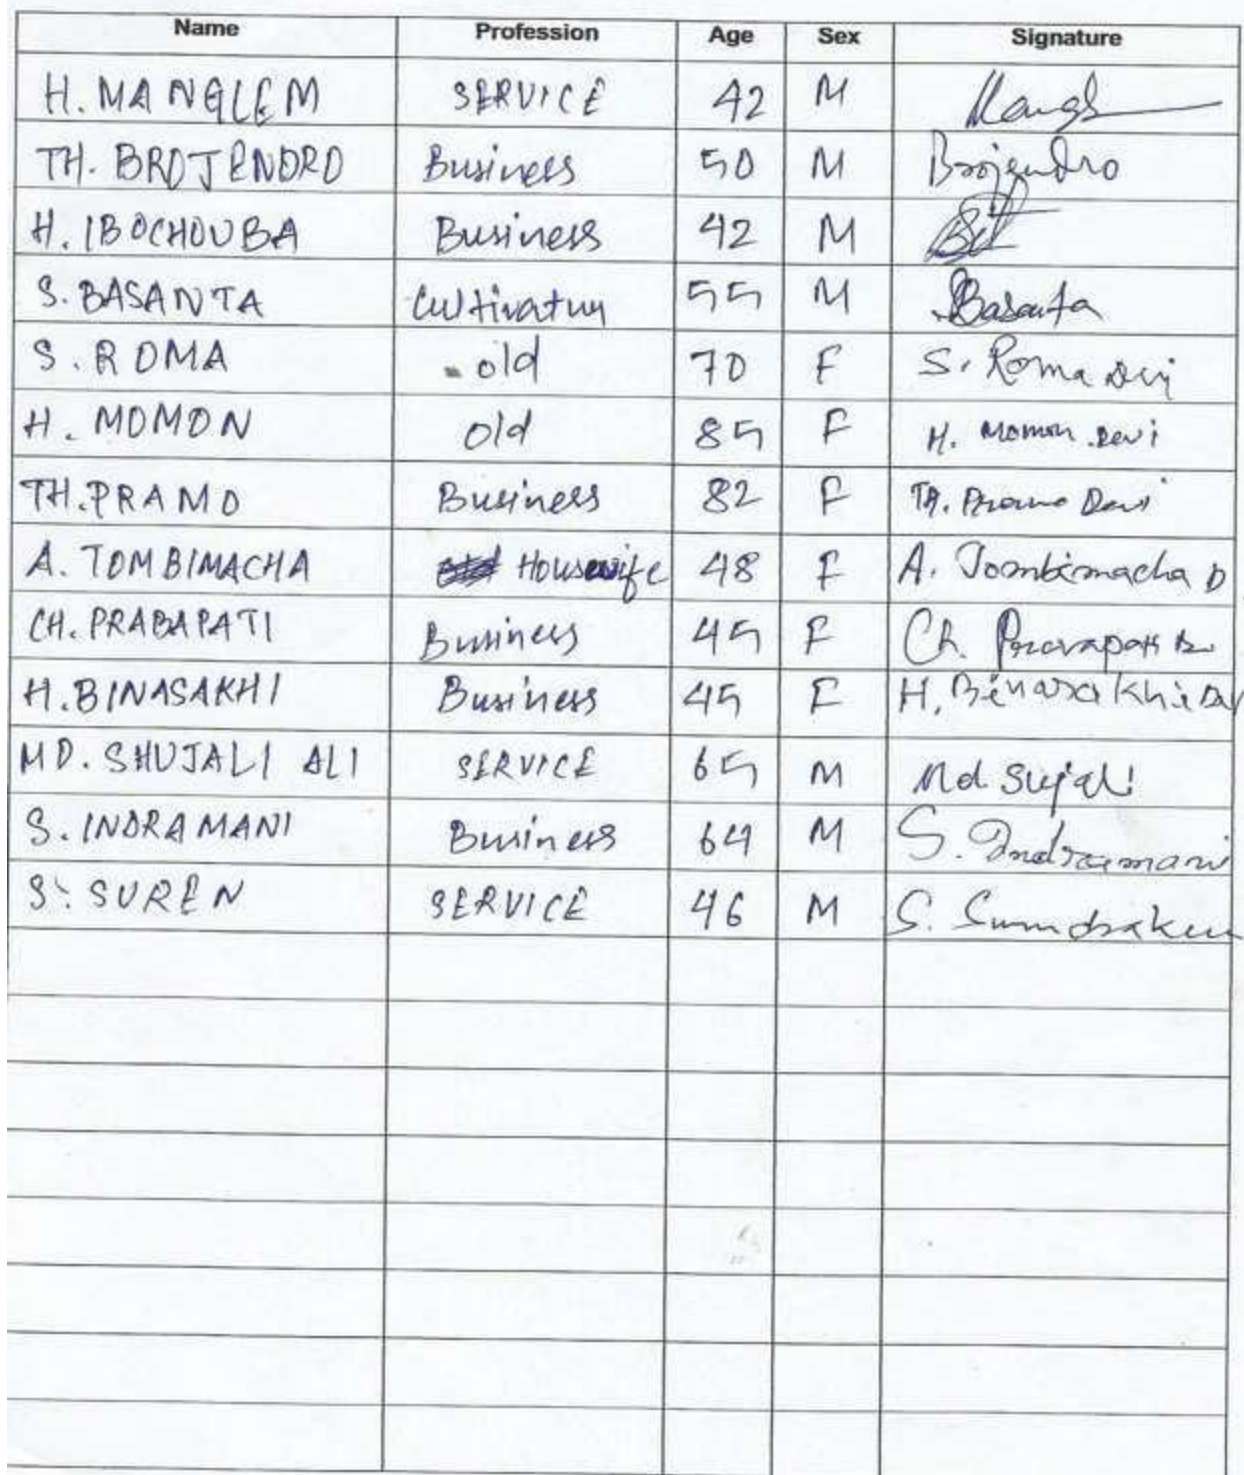 Name Profession Age Sex Signature
H. MANGLEM SERVICE 42 M
TH. BROJENDRO Business 50 M Brojendro
H. IBOCHOUBA Business 42 M
S. BASANTA Cultivatun 55 M Basanta
S. ROMA old 70 F S. Roma Devi
H. MOMON old 85 F H. Momon Devi
TH. PRAMO Business 82 F Th. Pramo Devi
A. TOMBIMACHA Housewife 48 F A. Tombimacha D
CH. PRABAPATI Business 45 F Ch.
H. BINASAKHI Business 45 F H. Binasakhi
MD. SHUJALI ALI SERVICE 65 M Md Sujali
S. INDRAMANI Business 64 M S. Indramani
S. SUREN SERVICE 46 M S.